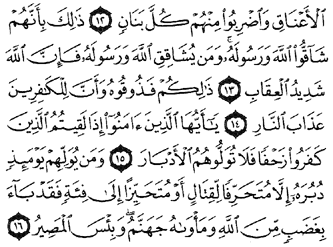 ٱلْأَعْنَاقِ وَٱضْرِبُوا۟ مِنْهُمْ كُلَّ بَنَانٍ ١٢ ذَٰلِكَ بِأَنَّهُمْ
شَآقُّوا۟ ٱللَّهَ وَرَسُولَهُۥ وَمَن يُشَاقِقِ ٱللَّهَ وَرَسُولَهُۥ فَإِنَّ ٱللَّهَ
شَدِيدُ ٱلْعِقَابِ ١٣ ذَٰلِكُمْ فَذُوقُوهُ وَأَنَّ لِلْكَٰفِرِينَ
عَذَابَ ٱلنَّارِ ١٤ يَٰٓأَيُّهَا ٱلَّذِينَ ءَامَنُوٓا۟ إِذَا لَقِيتُمُ ٱلَّذِينَ
كَفَرُوا۟ زَحْفًا فَلَا تُوَلُّوهُمُ ٱلْأَدْبَارَ ١٥ وَمَن يُوَلِّهِمْ يَوْمَئِذٍ
دُبُرَهُۥٓ إِلَّا مُتَحَرِّفًا لِّقِتَالٍ أَوْ مُتَحَيِّزًا إِلَىٰ فِئَةٍ فَقَدْ بَآءَ
بِغَضَبٍ مِّنَ ٱللَّهِ وَمَأْوَىٰهُ جَهَنَّمُ ۖ وَبِئْسَ ٱلْمَصِيرُ ١٦